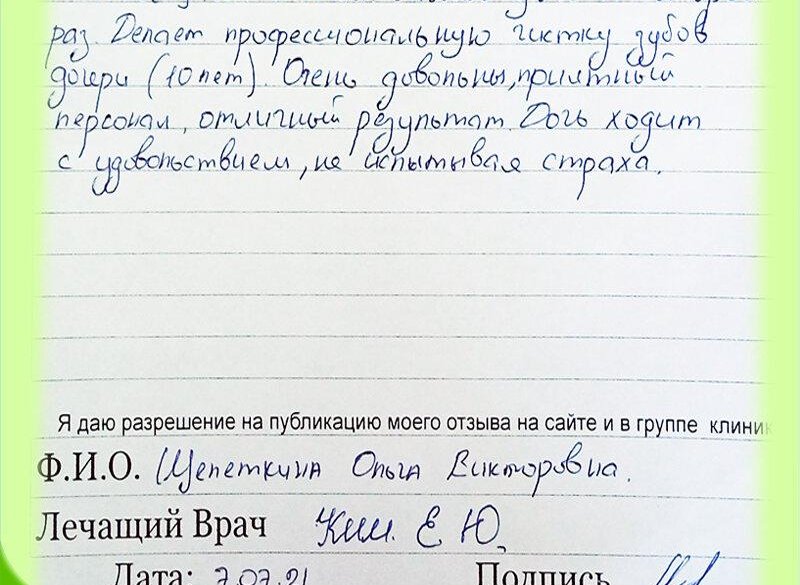 раз. Делает профессиональную чистку зубов
дочери (10 лет). Очень довольны, приятный
персонал, отличный результат. Дочь ходит
с удовольствием, не испытывая страха.
Я даю разрешение на публикацию моего отзыва на сайте и в группе клиник
Ф.И.О. Щепеткина Ольга Викторовна.
Лечащий Врач Ким. Е. Ю.
Дата: 7.07.21 Подпись